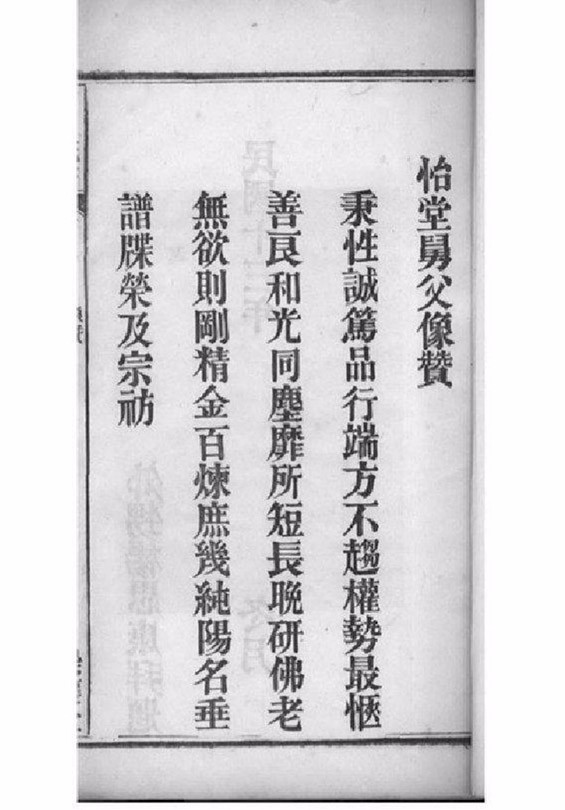 怡堂舅父像贊
秉性誠篤品行端方不趨權勢最愜
善良和光同塵靡所短長晚研佛老
無欲則剛精金百煉庶幾純陽名垂
譜牒榮及宗祊